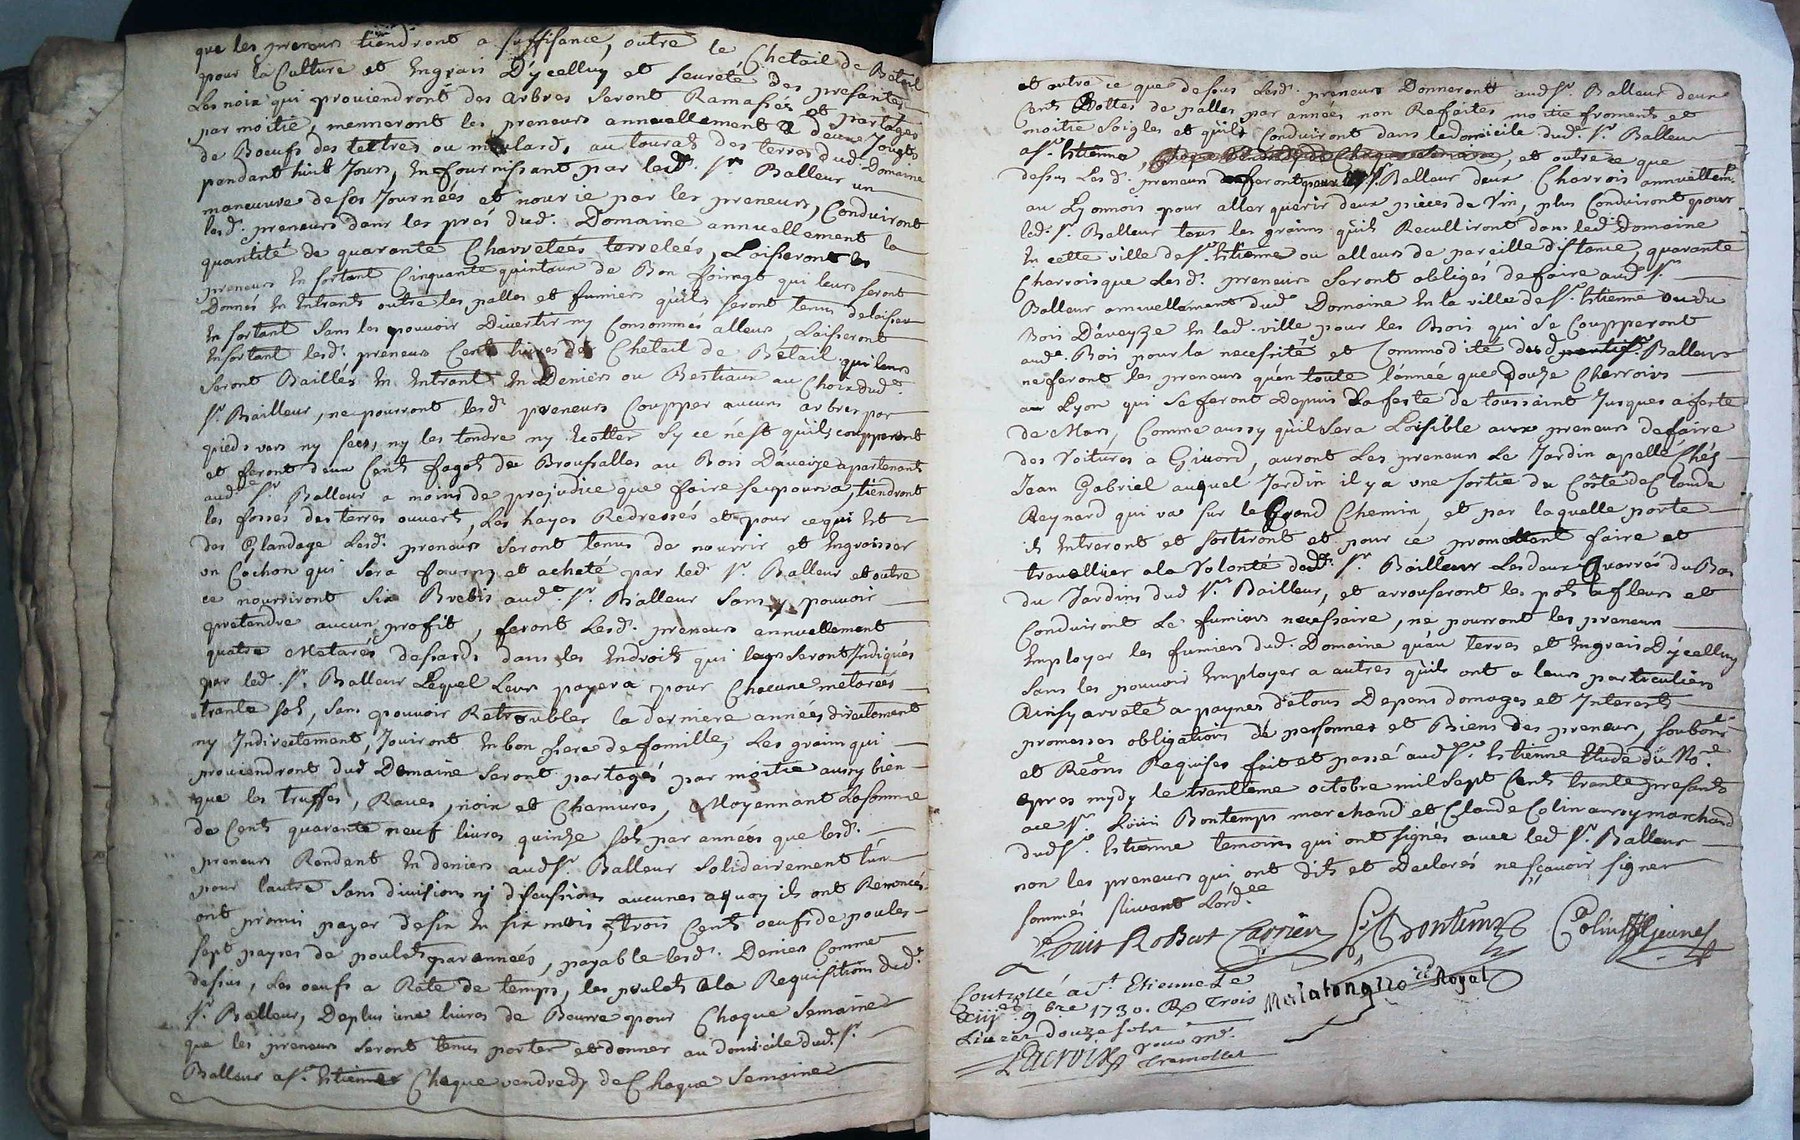 que les preneurs tiendront a suffisance, outre le Chetail de Betail
pour la Culture et Engrais D'ycelluy et seureté des presantes
Les noix qui proviendront des arbres seront Ramassés et partagés
par moitié, menneront les preneurs annuellement deux Jougts
de Boeufs des tettres ou mulards, au tourat des terres dud. Domaine
pendant huit Jours, En fournissant par led. Sr. Balleur un
maneuvre de ses Journées et nourie par les preneurs, Conduiront
lesd. preneurs dans les prés dud. Domaine annuellement la
quantité de quarante Charretées terreleés, Laisseront les
preneurs En sortant Cinquante quintaux de Bon foinragt qui leurs seront
Donnés En Entrants outre les palles et fumiers qu'ils seront tenus de laisser
En sortant sans les pouvoir Divertir ny Consommés alleurs, Laisseront
En sortant lesd. preneurs Cent livres de Chetail de Betail qui leurs
seront Baillés En Entrant En Deniers ou Bestiaux au Choix dud.
Sr. Bailleur, ne pourront lesd. preneurs Coupper aucuns arbres par
pieds vers ny secs, ny les tondre ny Ecotter sy ce n'est qu'ils coupperont
et feront deux Cents fagots de Brousalles au Bois D'aveize apartenants
aud. Sr. Balleur a moins de prejudice que faire se pourra, tiendront
les fosses des terres ouvert, Les hayes Redressés et pour ce qui Est
des Glandage Lesd. preneurs seront tenus de nourrir et Engraisser
un Cochon qui sera fourny et acheté par led. Sr. Balleur et outre
ce nourriront six Brebis aud. Sr. Balleur sans y pouvoir
pretandre aucun profit, feront Lesd. preneurs annuellement
quatre Metarés dessards dans les Endroits qui leurs seront Indiqués
par led. Sr. Balleur Lequel Leur payera pour Chacune metarées
trante sols, sans pouvoir Retroubler la darniere années directement
ny Indirectement, Jouiront En bon pere de famille, Les grains qui
proviendront dud. Domaine seront partagés par moitié aussy bien
que les truffes, Raves, noix et Chanvres, Moyennant La somme
de Cents quarante neuf livres quinze sols par années que lesd.
preneurs Rendent En deniers aud. Sr. Balleur solidairement l'un
pour l'autre sans division ny discussions aucunes a quoy ils ont Renoncés
ont promis payer de six En six mois, trois Cents oeufs de poules
sept payres de poulets par années, payable lesd. Deniers Comme
dessus, Les oeufs a Rate de temps, les poulets a la Requisition dud.
Sr. Balleur, De plus une livres de Beurre pour Chaque Semaine
que les preneurs seront tenus porter et donner au domicile dud. Sr.
Balleur a St. Estienne Chaque vendredy de Chaque Semaine
et outre ce que dessus Lesd. preneurs Donneront aud. Sr. Balleur deux
Cents Bottes de palles par années non Refaites moitié froments et
moitié soigles et qu'ils Conduiront dans le domicile dud. Sr. Balleur
a St. Estienne, et outre ce que
dessus Lesd. preneurs feront pour led. Sr. Balleur deux Charrois annuellemt.
au Lyonnois pour aller querir deux pieces de Vin, plus Conduiront pour
led. Sr. Balleur tous les grains qu'ils Recullliront dans led. Domaine
En cette ville de St. Estienne ou alleurs de pareille distance, quarante
Charrois que Lesd. preneurs seront obligés de faire aud. Sr.
Balleur annuellement dud. Domaine En la ville de St. Estienne ou du
Bois D'aveyze En lad. ville, pour les Bois qui se Coupperont
aud. Bois pour la necessité et Commodité dud. Sr. Balleur
ne feront les preneurs qu'en toute l'année que Douze Charrois
a Lyon qui se feront Depuis La feste de toussaint Jusques a feste
de Mars, Comme aussy qu'il sera Loisible aux preneurs de faire
des Voitures a Givord, auront Les preneurs Le Jardin apellé Chés
Jean Gabriel auquel Jardin il y a une sortie du Côsté de Claude
Reynard qui va sur le Grand Chemin, et par laquelle porte
ils Entreront et sortiront et pour ce promettent faire et
travallier a la Volonté dud. Sr. Bailleur Les deux Quarrés du Bas
du Jardins dud. Sr. Bailleur, et arrouseront les pots a fleurs et
Conduiront Le fumiers necessaire, ne pourront les preneurs
Employer les fumiers dud. Domaine qu'au terres et Engrais D'ycelluy
sans les pouvoir Employer a autres qu'ils ont a leurs particuliers
Ainsy arreté a paynes de tous Depens domages et Interests
promesses obligations de personnes et Biens des preneurs, soubons
et Reons Requises fait et passé aud. St. Estienne Etude du Nre.
apres mydy le trantieme octobre mil sept Cents trante presents
Sr. Louis Bontemps marchand et Claude Colin aussy marchand
dud. St. Estienne temoins qui ont signés avec led. Sr. Balleur
non les preneurs qui ont dits et Declarés ne sçavoir signer
sommés suivant L'ordce
Louis Robert Carrier Bontemps Colin jeune
Royal
Controllé a St. Etienne Le
xiij 9bre 1730. R Trois
Livres douze sols
pour mr.
Lacroix Tramollet